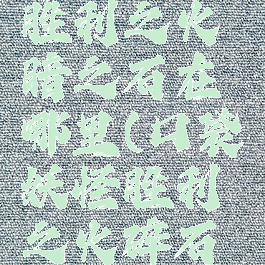 胜利之火
暗之石在
哪里(口袋
妖怪胜利
之火碎石